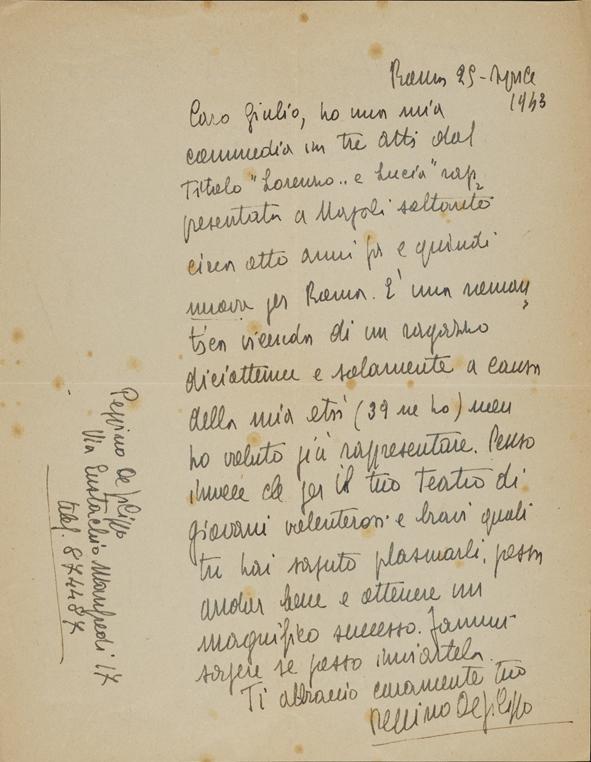 Roma 25 - Aprile
1943
Caro Giulio, ho una mia
commedia in tre atti dal
titolo "Lorenzo.. e Lucia" rap=
presentata a Napoli soltanto
circa otto anni fa e quindi
nuova per Roma. E' una roman=
tica vicenda di un ragazzo
diciottenne e solamente a causa
della mia età (39 ne ho) non
ho voluto più rappresentare. Penso
invece che per il tuo teatro di
giovani volenterosi e bravi quali
tu hai saputo plasmarli, possa
andar bene e ottenere un
magnifico successo. Fammi
sapere se posso inviartela.
Ti abbraccio caramente tuo
Peppino De Filippo
Peppino De Filippo
Via Eustachio Manfredi 17
telef. 874487